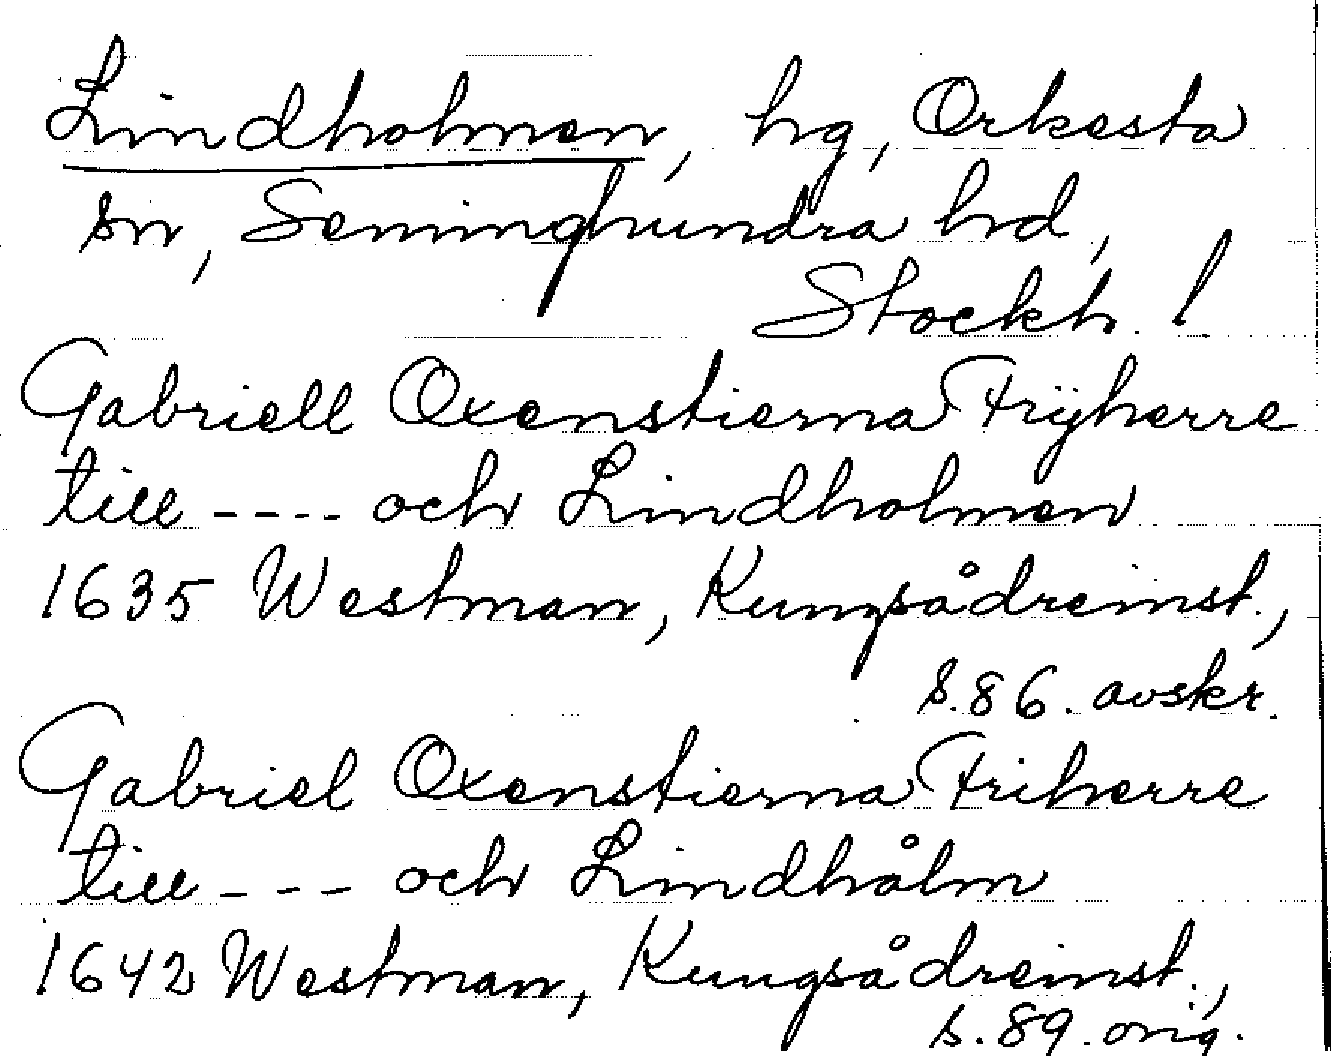 Lindholmen, hg, Orkesta
sn, Seminghundra hd,
Stockh. l
Gabriell Oxenstierna Frijherre
till ---- och Lindholmen
1635 Westman, Kungsådreinst.,
s. 86. avskr.
Gabriel Oxenstierna Friherre
till --- och Lindhålm
1642 Westman, Kungsådreinst.,
s. 89. orig.